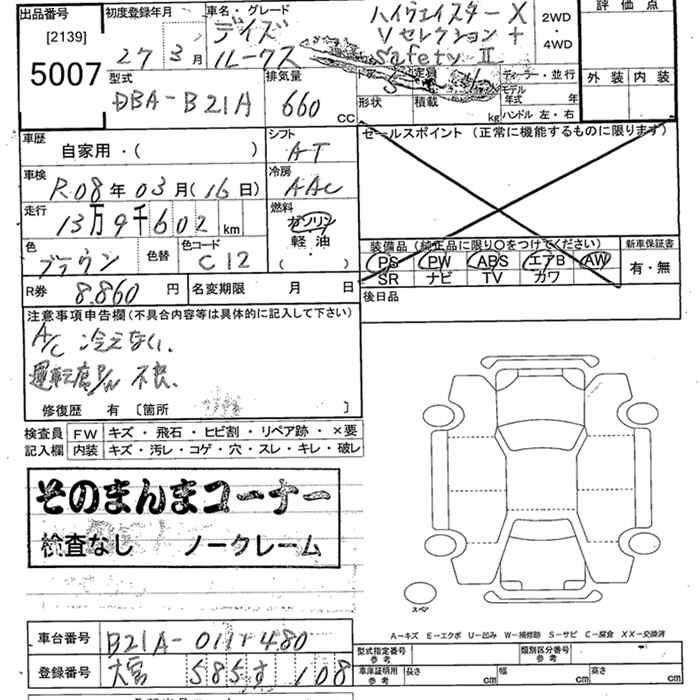 出品番号 初度登録年月 車名・グレード 評価点
[2139]
5007 27年3月 デイズ ルークス ハイウェイスター X
Vセレクション+
Safety II
2WD
・
4WD
型式 排気量 ドア 定員 ディーラー・並行 外装 内装
DBA-B21A 660 CC 形状 積載 kg モデル年式 年
ハンドル 左・右
車歴 シフト セールスポイント (正常に機能するものに限ります)
自家用・( ) AT
車検 冷房
R08年03月(16日) AAC
走行 燃料
13万9千602km ガソリン
軽油
( ・ )
色 色替 色コード 装備品 (純正品に限り○をつけてください) 新車保証書
ブラウン C12 PS PW ABS エアB AW 有・無
SR ナビ TV カワ
R券 8.860円 名変期限 月 日 後日品
注意事項申告欄(不具合内容等は具体的に記入して下さい)
A/C 冷えない、
運転席P/W 不良、
修復歴 有 [箇所 ]
検査員 FW キズ・飛石・ヒビ割・リペア跡・×要
記入欄 内装 キズ・汚レ・コゲ・穴・スレ・キレ・破レ
そのまんまコーナー
検査なし ノークレーム
スペア
A-キズ E-エクボ U-凹み W-補修跡 S-サビ C-腐食 XX-交換済
車台番号 B21A-0111480
登録番号 大宮 585す 108
型式指定番号 参考 類別区分番号 参考
車庫証明用 参考 長さ cm 幅 cm 高さ cm